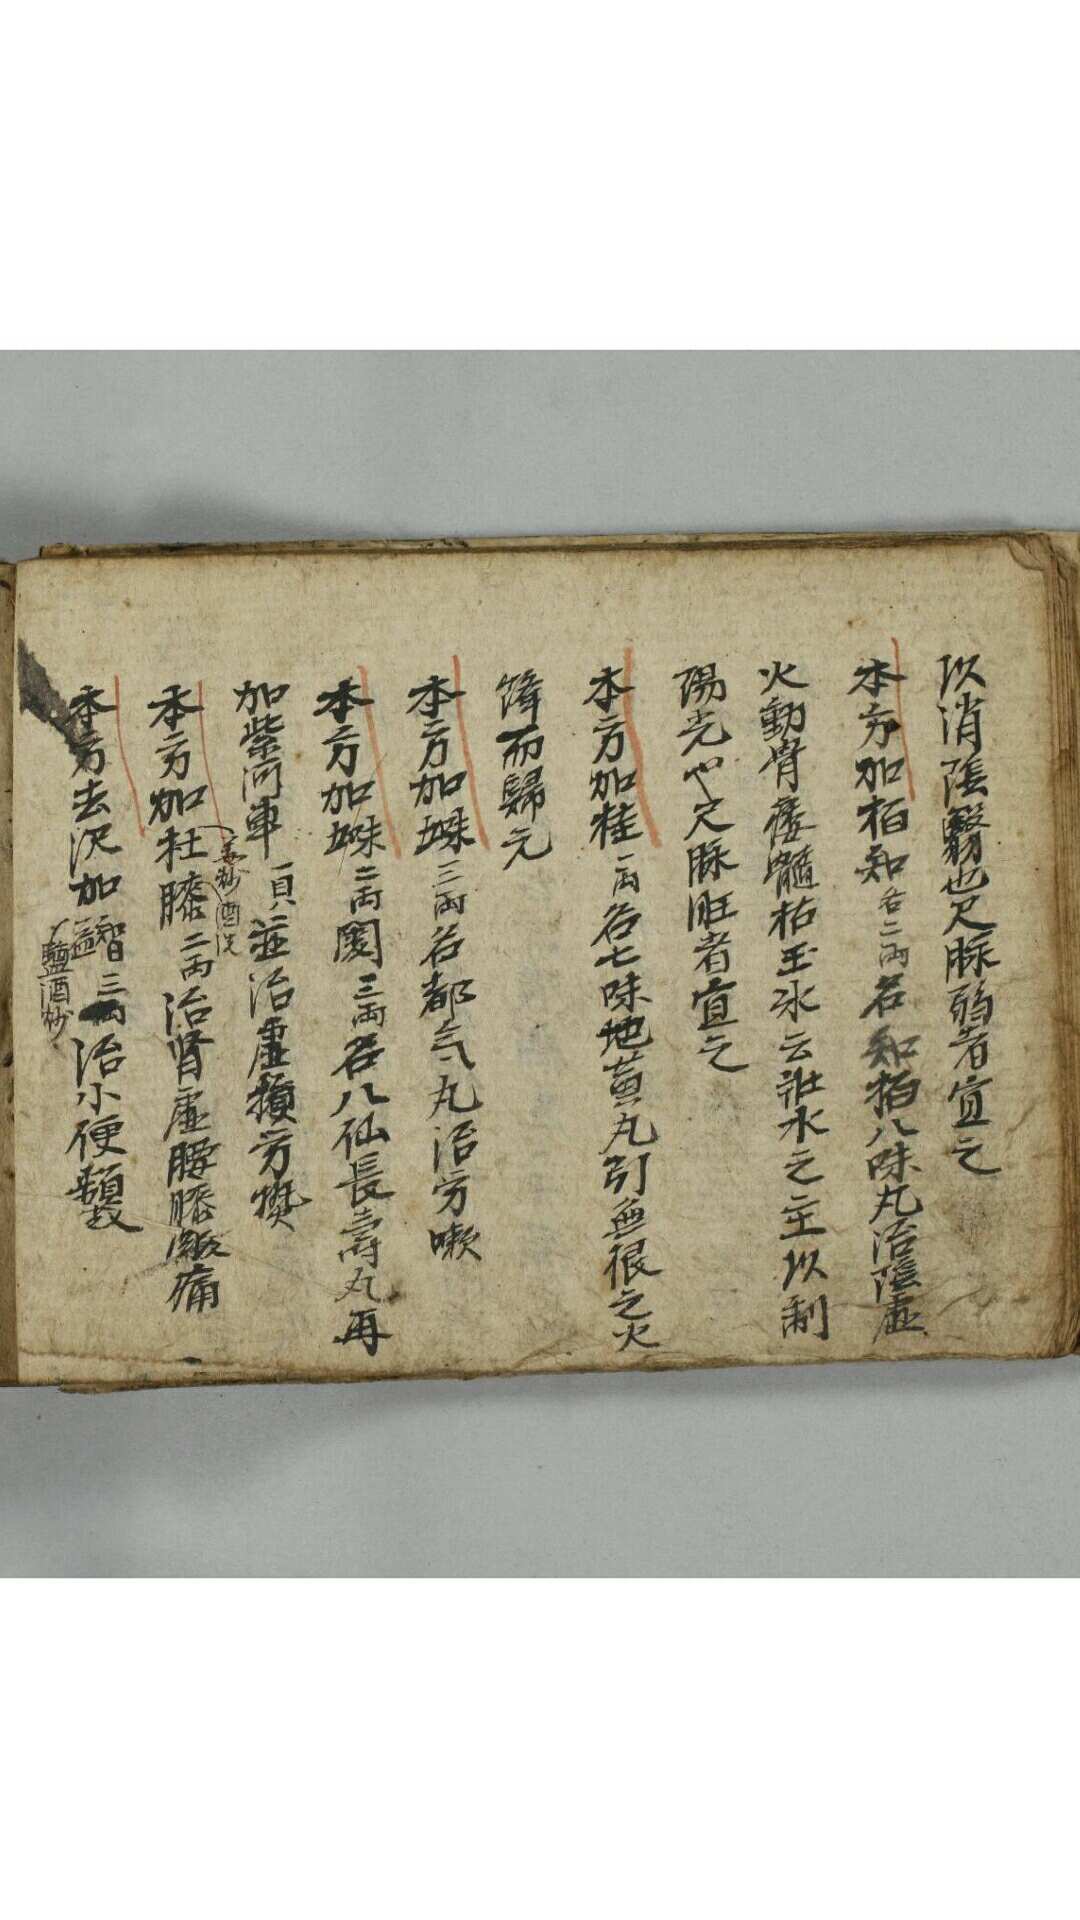 以消陰翳也尺脉弱者宜之
本方加柏知各二両名知柏八味丸治陰虚
火動骨痿髓枯王冰云壯水之主以制
陽光也尺脉旺者宜之
本方加桂一両名七味地黄丸引無根之火
降而歸元
本方加味三両名都気丸治労嗽
本方加味二両門三両名八仙長壽丸再
加紫河車一具並治虚損労熱
本方加杜膝二両治肾虚腰膝酸痛
姜炒 酒洗
本方去沢加益智三両治小便頻数
盬酒炒